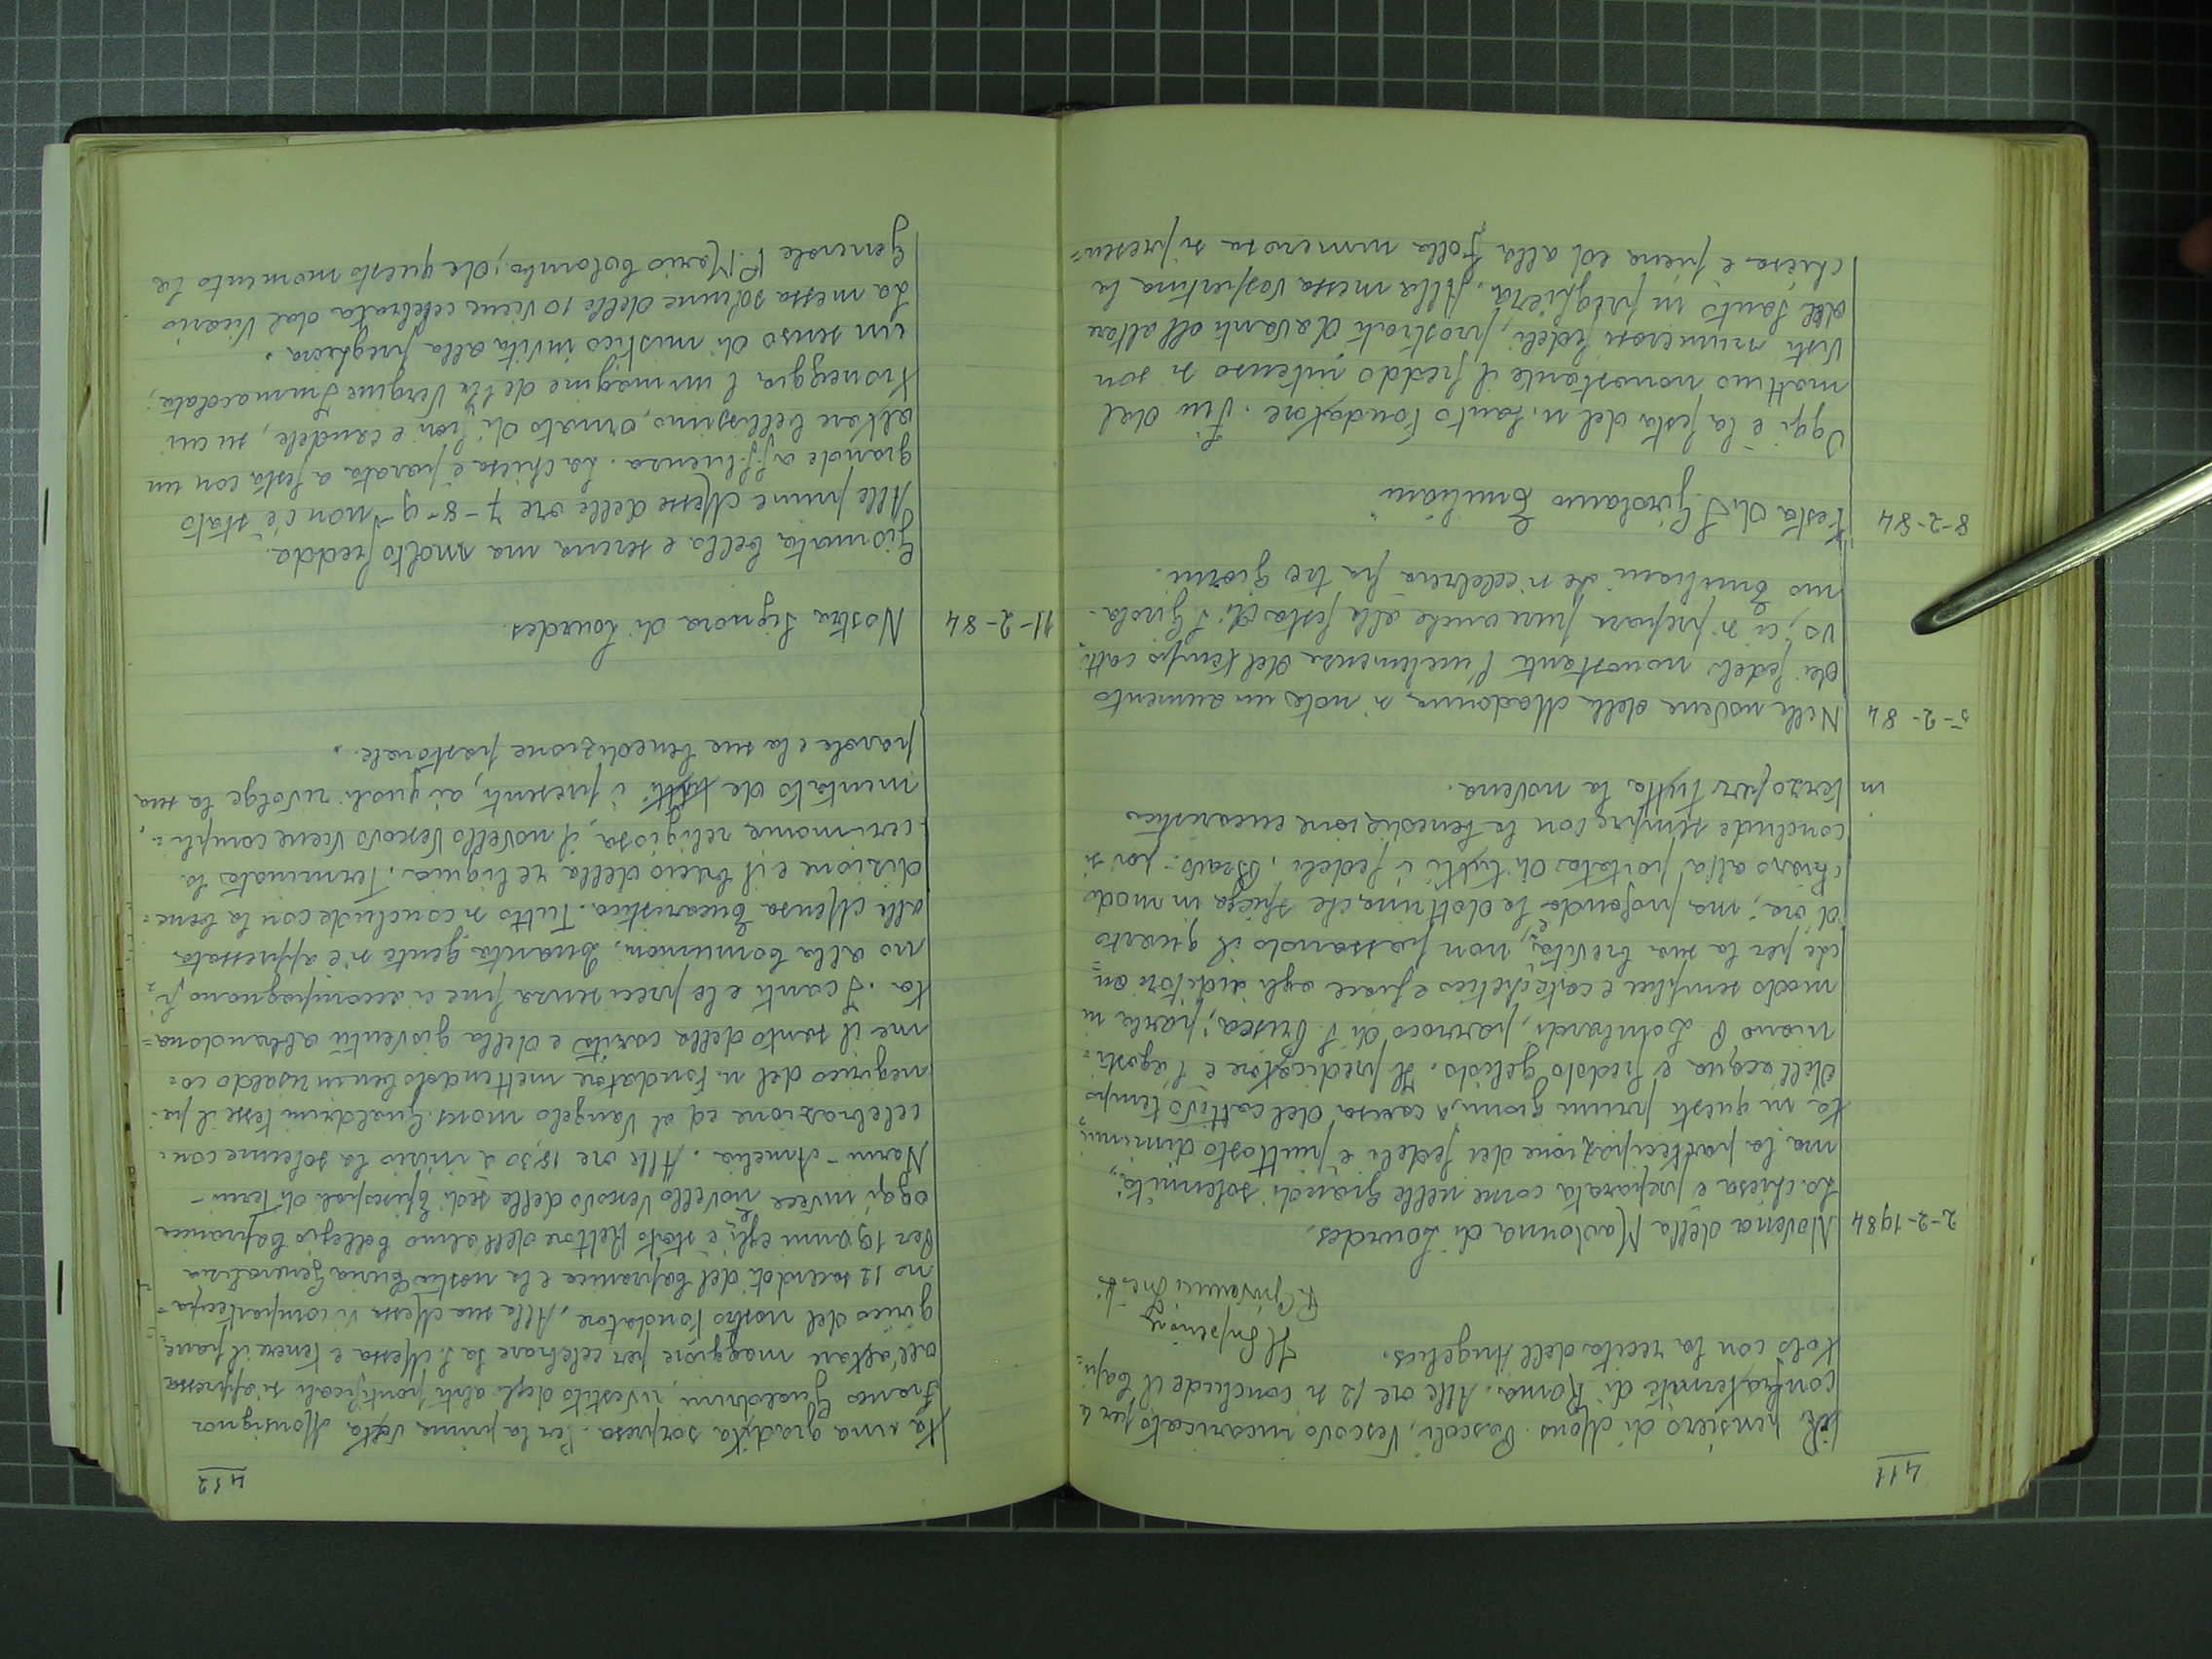 411
pensiero di Mons. Pascoli, Vescovo incaricato per le
confraternite di Roma. Alle ore 12 si conclude il Capi=
tolo con la recita dell'Angelus.
Il Superiore
P. Giovanni
2-2-1984 Novena della Madonna di Lourdes.
La chiesa è preparata come nelle grandi solennità,
ma la partecipazione dei fedeli è piuttosto diminui
ta in questi primi giorni, a causa del cattivo tempo
dell'acqua e freddo gelido. Il predicatore è l'agosti=
niano P. Lombardi, parroco di S. Prisca; parla in
modo semplice e catechetico e piace agli uditori an=
che per la sua brevità, non passando il quarto
d'ora; ma profonda è la dottrina che spiega in modo
chiaro alla portata di tutti i fedeli. Bravo: poi si
conclude sempre con la benedizione eucaristica
in terzo per tutta la novena.
5-2-84 Nella novena della Madonna si nota un aumento
dei fedeli nonostante l'inclemenza del tempo catti
vo; ci si prepara pure anche alla festa di S. Girola-
mo Emiliani che si celebrerà fra tre giorni.
8-2-84 "Festa di S. Girolamo Emiliani"
Oggi è la festa del n. Santo Fondatore. Fin dal
mattino nonostante il freddo intenso si son
visti numerosi fedeli, prostrati davanti all'altare
del Santo in preghiera. Alla messa vespertina la
chiesa è piena ed alla folla numerosa si presen=
412
ta una gradita sorpresa. Per la prima volta Monsignor
Franco Gualdrini, rivestito degli abiti pontificali si appressa
all'altare maggiore per celebrare la S. Messa e tenere il pane=
girico del nostro Fondatore. Alla sua Messa vi compartecipa=
no 12 sacerdoti del Capranica e la nostra Curia Generalizia
Per 19 anni egli è stato Rettore dell'almo Collegio Capranica
oggi invece è novello Vescovo delle sedi Episcopali di Terni-
Narni-Amelia. Alle ore 18,30 s'inizia la solenne con=
celebrazione ed al Vangelo mons. Gualdrini tesse il pa=
negirico del n. Fondatore mettendolo ben in risalto co=
me il santo della carità e della gioventù abbandona=
ta. I canti e le preci senza fine ci accompagnano fi=
no alla Comunione. Quanta gente si è appressata
alla Mensa Eucaristica. Tutto si conclude con la bene=
dizione e il bacio della reliquia. Terminata la
cerimonia religiosa, il novello Vescovo viene compli=
mentato da tutti i presenti, ai quali rivolge la sua
parola e la sua benedizione pastorale.
11-2-84 Nostra Signora di Lourdes.
Giornata bella e serena ma molto fredda.
Alle prime Messe delle ore 7-8-9 non c'è stata
grande affluenza. La chiesa è parata a festa con un
altare bellissimo, ornato di fiori e candele, su cui
troneggia l'immagine della Vergine Immacolata;
un senso di mistico invita alla preghiera.
La messa solenne delle 10 viene celebrata dal Vicario
Generale P. Mario Colombo; da questo momento la